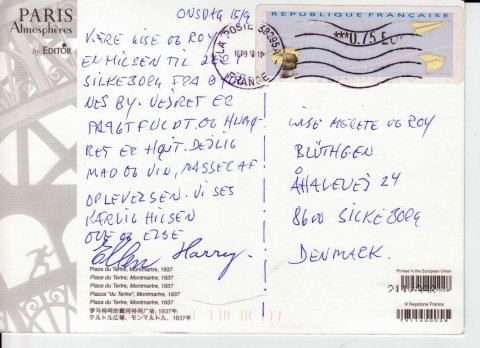 PARIS
Atmosphères
by EDITOR
ONSDAG 15/9
KÆRE LISE OG ROY
EN HILSEN TIL JER
SILKEBORG FRA BYER
NES BY. VEJRET ER
PRAGTFULDT. OG HUMØ
RET ER HØJT. DEJLIG
MAD OG VIN, MASSER AF
OPLEVELSER. VI SES
KÆRLIG HILSEN
OVE OG ELSE
Ellen Harry.
RÉPUBLIQUE FRANÇAISE
***0,75 EU
LA POSTE 39295A
FRANCE
LISE MERETE OG ROY
BLÜTHGEN
ÅHALEVEJ 24
8600 SILKEBORG
DENMARK.
Place du Tertre, Montmartre, 1937
Place du Tertre, Montmartre, 1937
Place du Tertre, Montmartre, 1937
Piazza "du Tertre", Montmartre, 1937
Plaza du Tertre, Montmartre, 1937
梦马特呵的戴何特何广场; 1937年
テルトル広場、モンマルトル、1937年
Printed in the European Union
© Keystone France